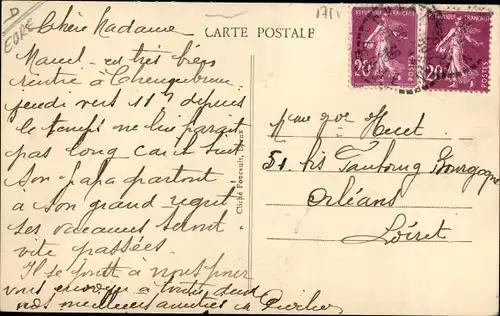 D
EURE
Chère Madame
CARTE POSTALE
Marcel est très bien
rentré à
jeudi vers 11h depuis
le temps ne lui parait
pas long car il suit
son papa partout
a son grand regret
ses vacances seront
vite passées.
Il se joint à nous pour
vous envoyer a toutes deux
nos meilleures amitiés
Cliché Foucault, Dreux
REPUBLIQUE FRANÇAISE
20c
REPUBLIQUE FRANÇAISE
20c
Mme Vve Huet
51 bis Faubourg Bourgogne
Orléans
Loiret